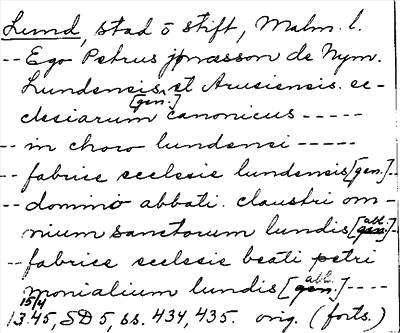 Lund, stad o stift, Malm. l.
-- Ego Petrus jonæsson de Nym.
Lundensis [gen.] et Arusiensis. ec-
clesiarum canonicus -----
-- in choro lundensi -----
-- fabrice ecclesie lundensis [gen.] --
-- domino abbati claustri om-
nium sanctorum lundis [gen. abl.] --
-- fabrice ecclesie beati petri
monialium lundis [gen. abl.] ----
15/4 1345, SD 5, ss. 434, 435. orig. (forts.)